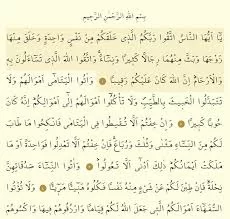 بِسْمِ اللَّهِ الرَّحْمَٰنِ الرَّحِيمِ
يَا أَيُّهَا النَّاسُ اتَّقُوا رَبَّكُمُ الَّذِي خَلَقَكُم مِّن نَّفْسٍ وَاحِدَةٍ وَخَلَقَ مِنْهَا
زَوْجَهَا وَبَثَّ مِنْهُمَا رِجَالًا كَثِيرًا وَنِسَاءً وَاتَّقُوا اللَّهَ الَّذِي تَسَاءَلُونَ بِهِ
وَالْأَرْحَامَ إِنَّ اللَّهَ كَانَ عَلَيْكُمْ رَقِيبًا وَآتُوا الْيَتَامَىٰ أَمْوَالَهُمْ وَلَا
تَتَبَدَّلُوا الْخَبِيثَ بِالطَّيِّبِ وَلَا تَأْكُلُوا أَمْوَالَهُمْ إِلَىٰ أَمْوَالِكُمْ إِنَّهُ كَانَ
حُوبًا كَبِيرًا وَإِنْ خِفْتُمْ أَلَّا تُقْسِطُوا فِي الْيَتَامَىٰ فَانكِحُوا مَا طَابَ
لَكُم مِّنَ النِّسَاءِ مَثْنَىٰ وَثُلَاثَ وَرُبَاعَ فَإِنْ خِفْتُمْ أَلَّا تَعْدِلُوا فَوَاحِدَةً أَوْ مَا
مَلَكَتْ أَيْمَانُكُمْ ذَٰلِكَ أَدْنَىٰ أَلَّا تَعُولُوا وَآتُوا النِّسَاءَ صَدُقَاتِهِنَّ
نِحْلَةً فَإِن طِبْنَ لَكُمْ عَن شَيْءٍ مِّنْهُ نَفْسًا فَكُلُوهُ هَنِيئًا مَّرِيئًا وَلَا تُؤْتُوا
السُّفَهَاءَ أَمْوَالَكُمُ الَّتِي جَعَلَ اللَّهُ لَكُمْ قِيَامًا وَارْزُقُوهُمْ فِيهَا وَاكْسُوهُمْ